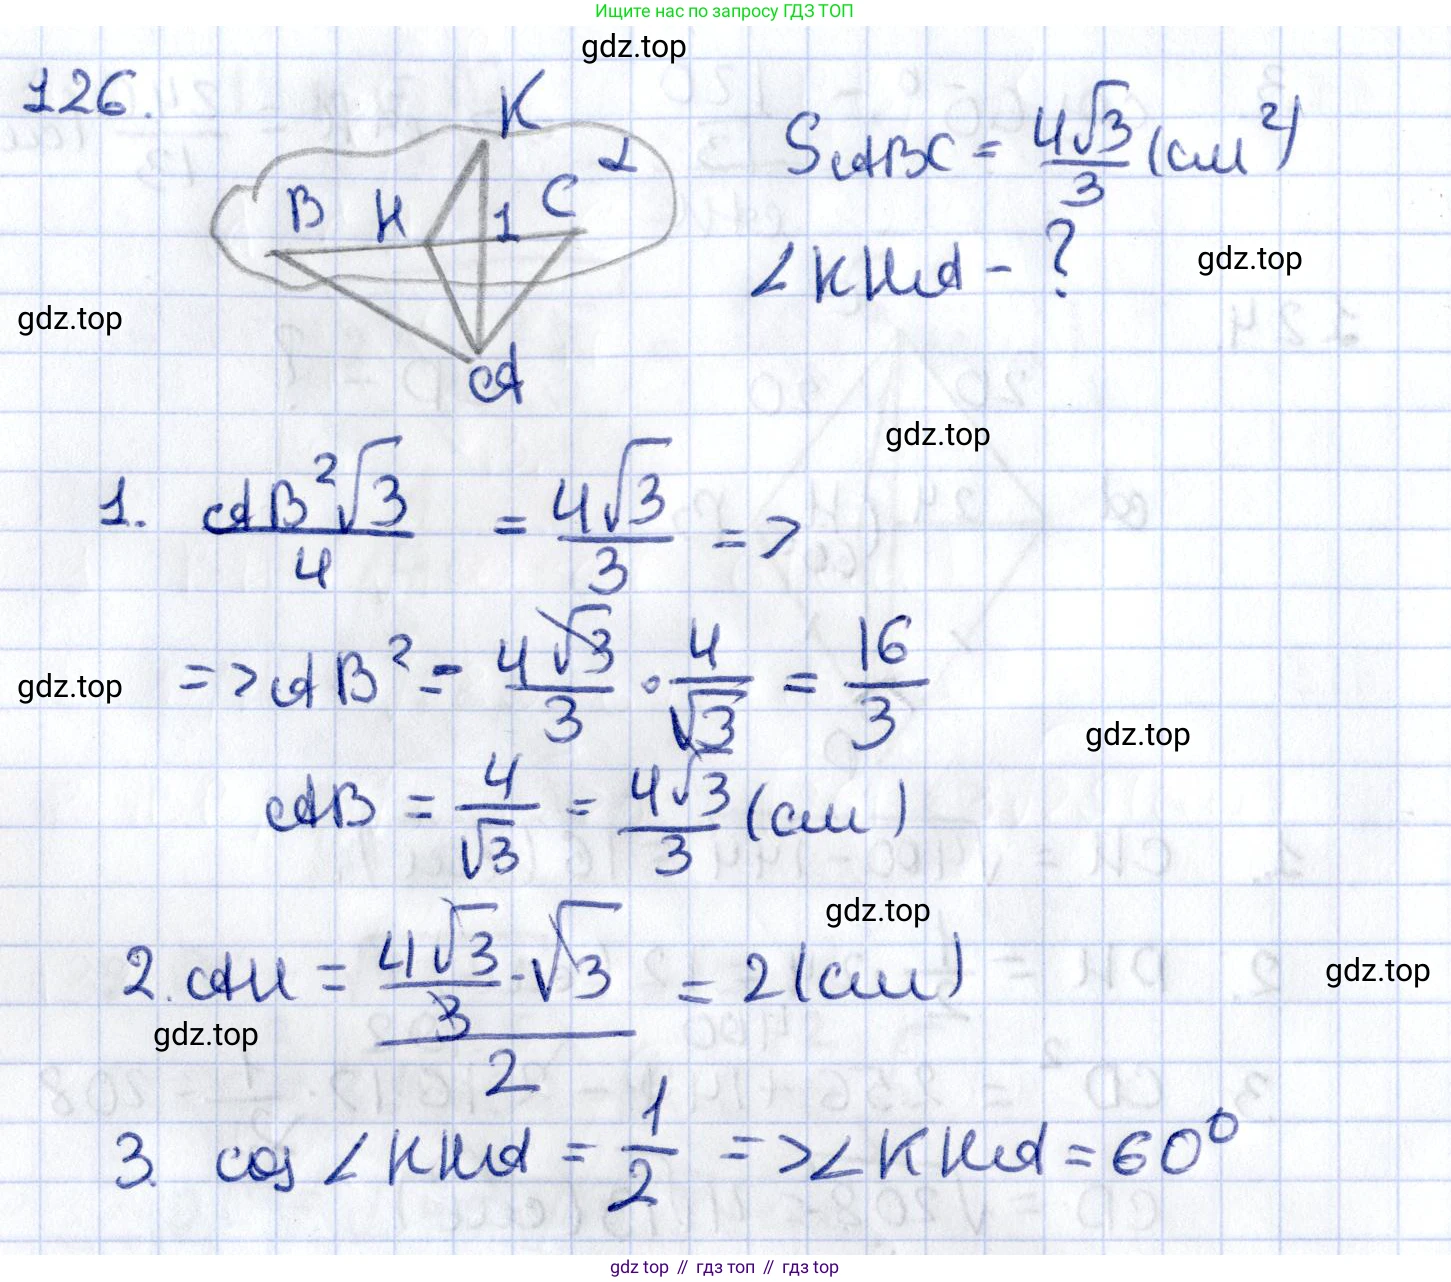 Ищите нас по запросу ГДЗ ТОП
gdz.top
126.
K
B H 1 C 2
A
S ABC = 4√3/3 (см²)
∠KHA - ?
gdz.top
gdz.top
gdz.top
1. AB²√3/4 = 4√3/3 =>
=> AB² = 4√3/3 · 4/√3 = 16/3
gdz.top
gdz.top
AB = 4/√3 = 4√3/3 (см)
gdz.top
2. AH = (4√3/3 · √3)/2 = 2 (см)
gdz.top
gdz.top
3. cos ∠KHA = 1/2 => ∠KHA = 60°
gdz.top // гдз топ // гдз top